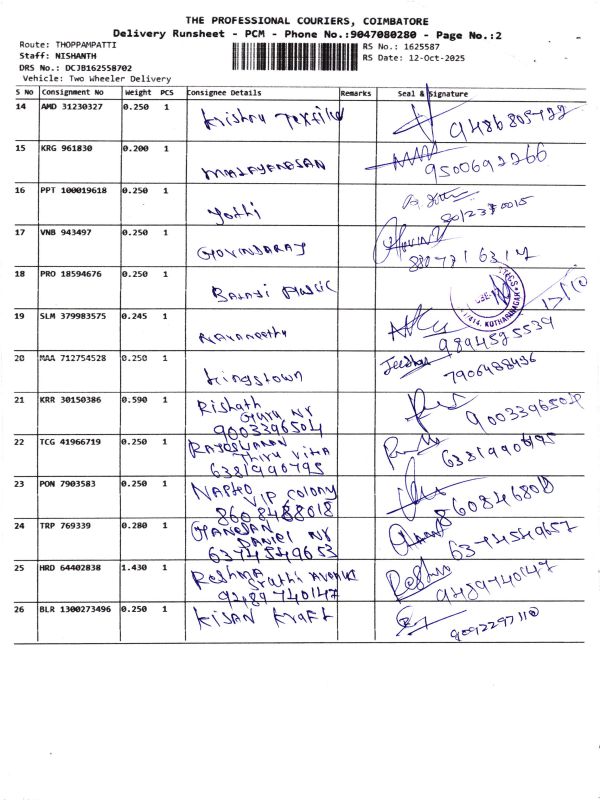 THE PROFESSIONAL COURIERS, COIMBATORE
Delivery Runsheet - PCM - Phone No.:9047080280 - Page No.:2
Route: THOPPAMPATTI
Staff: NISHANTH
DRS No.: DCJB162558702
Vehicle: Two Wheeler Delivery
RS No.: 1625587
RS Date: 12-Oct-2025
S No Consignment No Weight PCS Consignee Details Remarks Seal & Signature
14 AMD 31230327 0.250 1 Krishna Textiles
15 KRG 961830 0.200 1 9500692266
16 PPT 100019618 0.250 1 Jothi 8012370015
17 VNB 943497 0.250 1 GOVINDARAJ
18 PRO 18594676 0.250 1 Balaji
19 SLM 379983575 0.245 1 Navaneetha 9894525539
20 MAA 712754528 0.250 1 Kingstown 7906488436
21 KRR 30150386 0.590 1 Rishath
Guru Nr
9003396504 9003396504
22 TCG 41966719 0.250 1 RAJESWARAN
Thiru
6381990795 6381990795
23 PON 7903583 0.250 1
VIP Colony
8608468018 860846808
24 TRP 769339 0.280 1 GANESAN
DANIEL Nr
6374549653 6374549657
25 HRD 64402838 1.430 1 Reshma
Avenue
9489740147 9489740147
26 BLR 1300273496 0.250 1 KISAN Kraft 9092297110